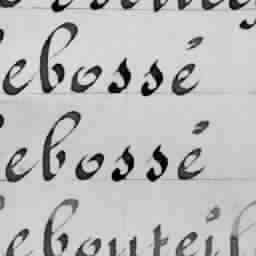 ebossé
ebossé
ebouteil